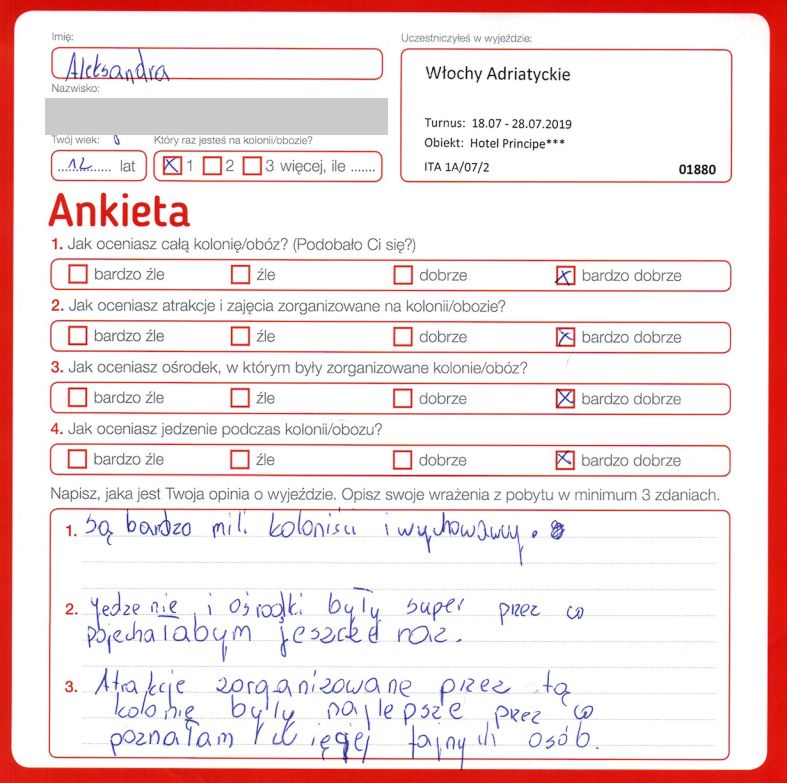 Imię:
Aleksandra
Nazwisko:
Twój wiek:
12 lat
Który raz jesteś na kolonii/obozie?
X 1 2 3 więcej, ile .......
Uczestniczyłeś w wyjeździe:
Włochy Adriatyckie
Turnus: 18.07 - 28.07.2019
Obiekt: Hotel Principe***
ITA 1A/07/2 01880
Ankieta
1. Jak oceniasz całą kolonię/obóz? (Podobało Ci się?)
bardzo źle źle dobrze X bardzo dobrze
2. Jak oceniasz atrakcje i zajęcia zorganizowane na kolonii/obozie?
bardzo źle źle dobrze X bardzo dobrze
3. Jak oceniasz ośrodek, w którym były zorganizowane kolonie/obóz?
bardzo źle źle dobrze X bardzo dobrze
4. Jak oceniasz jedzenie podczas kolonii/obozu?
bardzo źle źle dobrze X bardzo dobrze
Napisz, jaka jest Twoja opinia o wyjeździe. Opisz swoje wrażenia z pobytu w minimum 3 zdaniach.
1. Są bardzo mili koloniści i wychowawcy.
2. Jedzenie i ośrodki były super przez co
pojechałabym jeszcze raz.
3. Atrakcje zorganizowane przez tą
kolonię były najlepsze przez co
poznałam więcej fajnych osób.